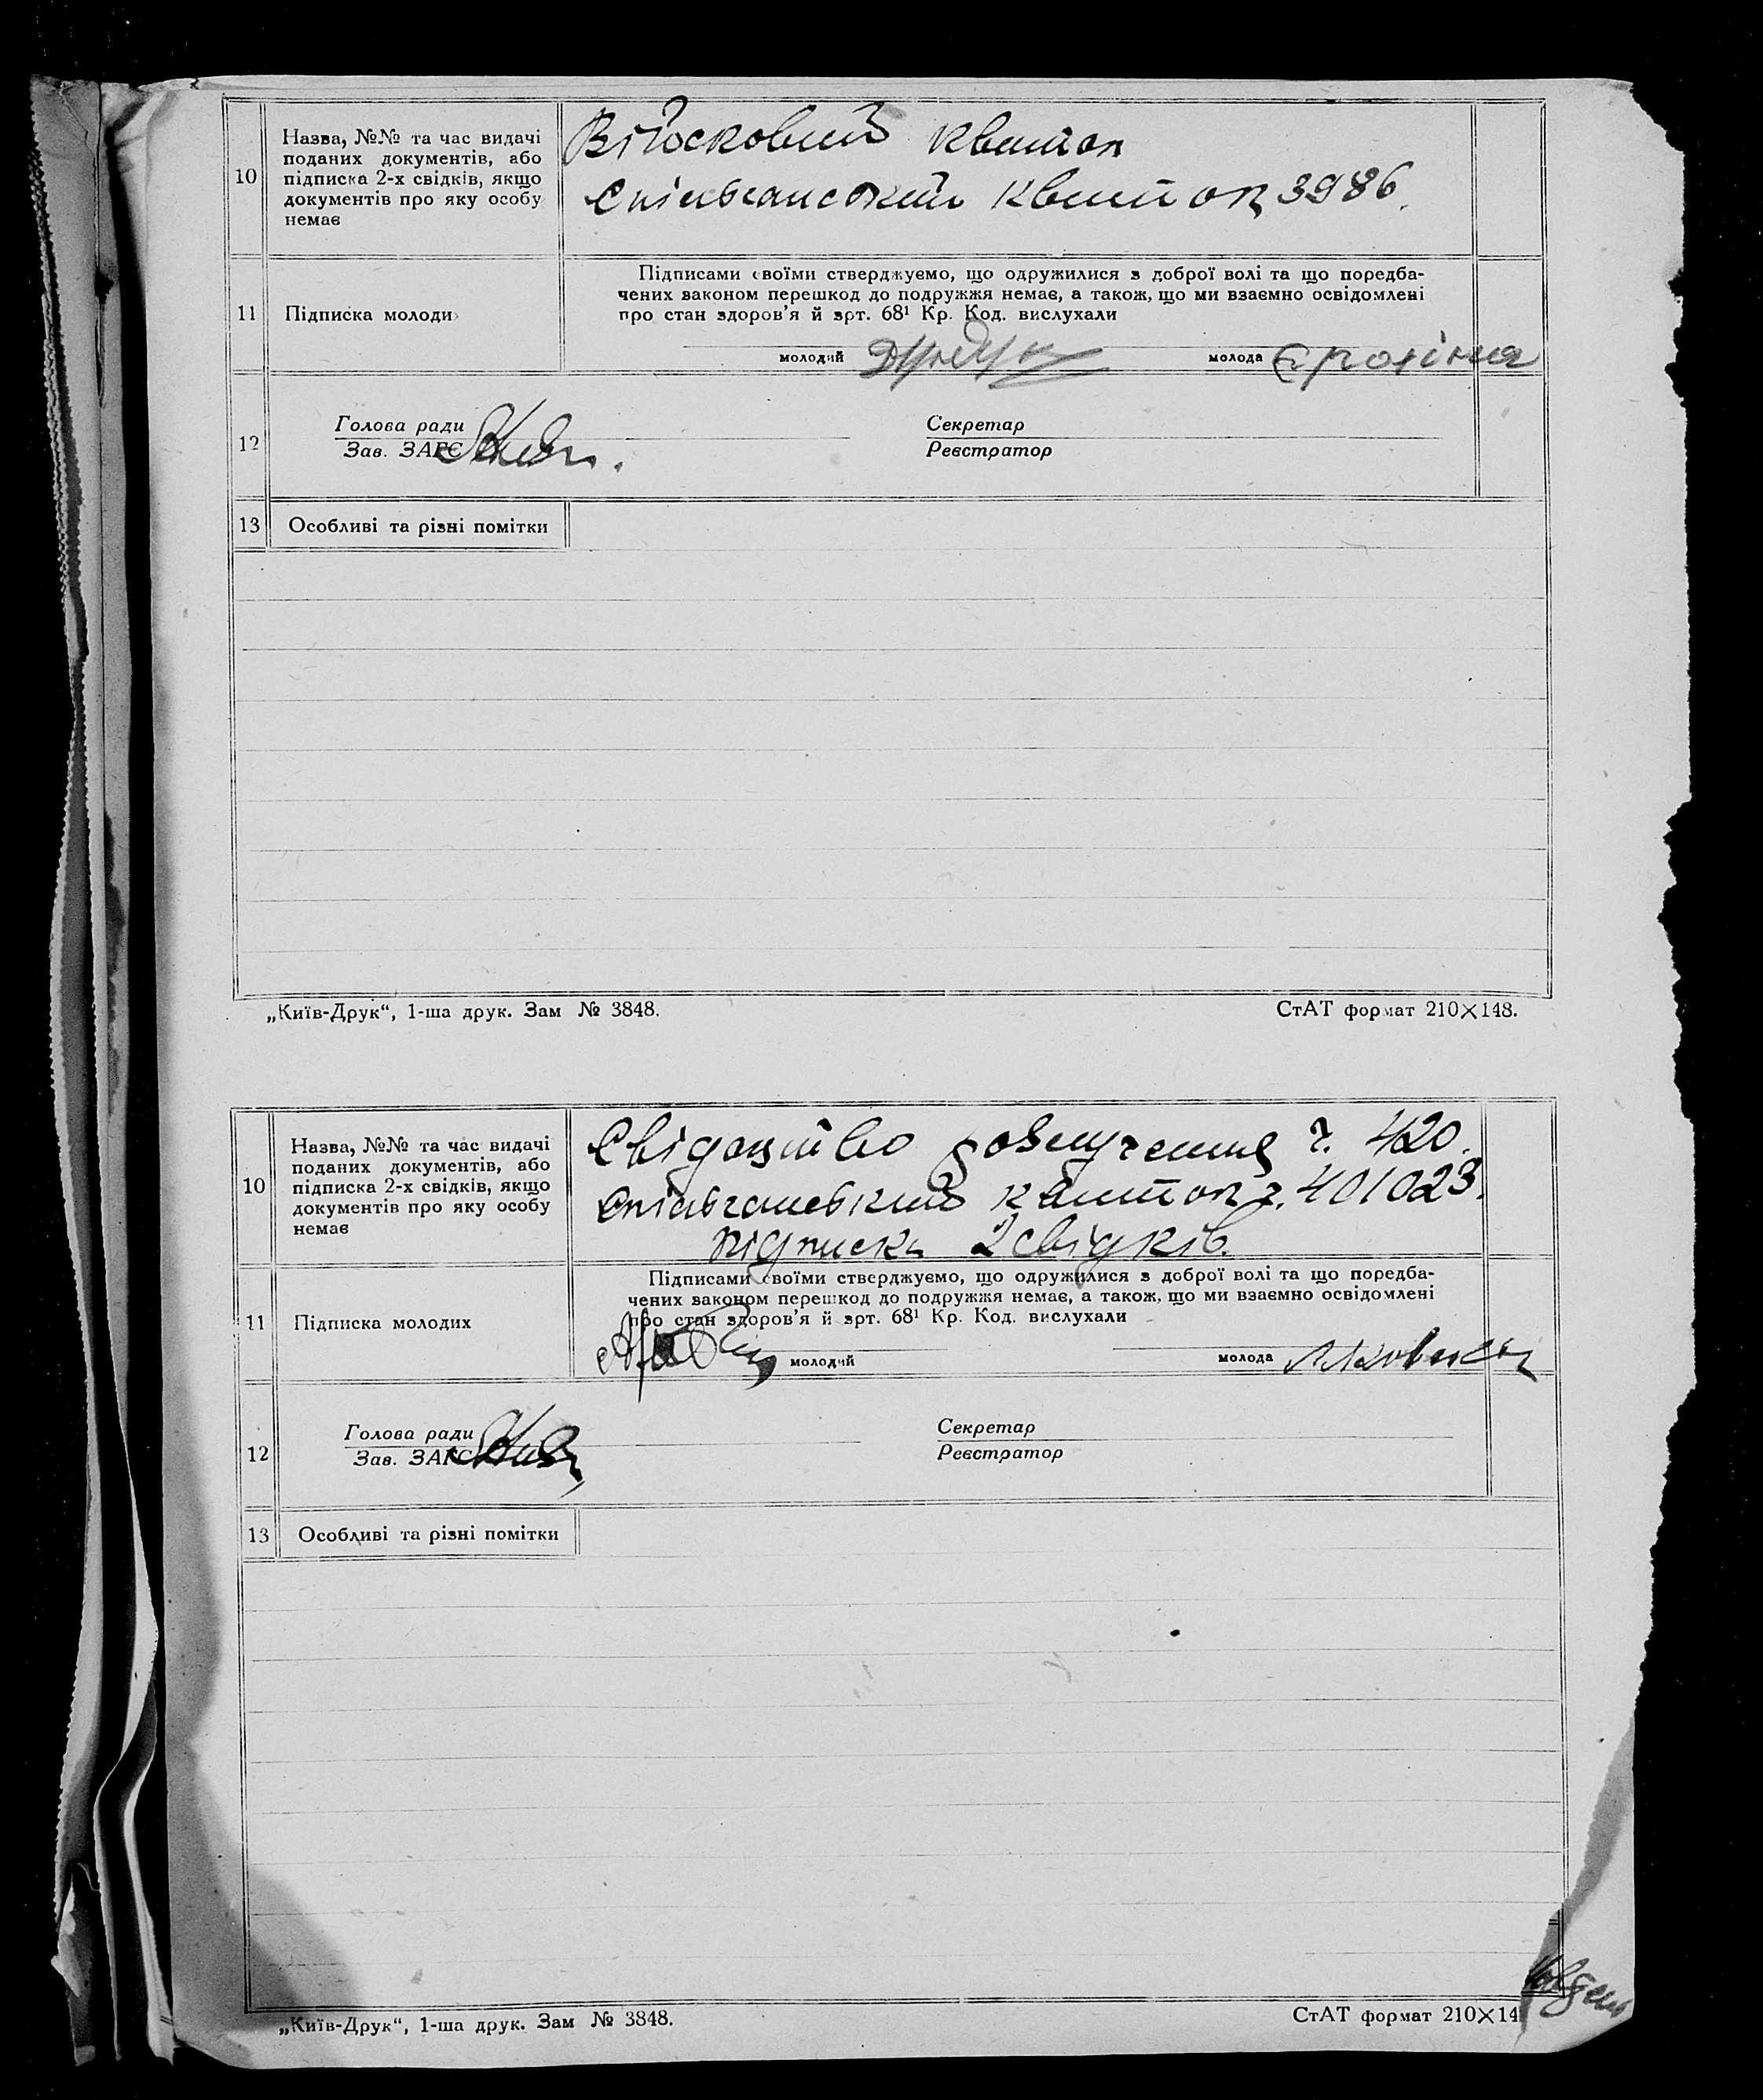 10
Назва, №№ та час видачі
поданих документів, або
підписка 2-х свідків, якщо
документів про яку особу
немає
Військовий квиток
Спілчанський квиток 3986.
11
Підписка молоди
Підписами своїми стверджуємо, що одружилися з доброї волі та що поредба-
чених законом перешкод до подружжя немає, а також, що ми взаємно освідомлені
про стан здоров'я й зрт. 68¹ Кр. Код. вислухали
молодий
молода
12
Голова ради
Зав. ЗАГС
Секретар
Реєстратор
13
Особливі та різні помітки
„Київ-Друк“, 1-ша друк. Зам № 3848.
СтАТ формат 210×148.
10
Назва, №№ та час видачі
поданих документів, або
підписка 2-х свідків, якщо
документів про яку особу
немає
Свідоцтво розлучення ч. 420.
Спілчанський квиток ч. 401023.
підписка 2 свідків.
11
Підписка молодих
Підписами своїми стверджуємо, що одружилися з доброї волі та що поредба-
чених законом перешкод до подружжя немає, а також, що ми взаємно освідомлені
про стан здоров'я й зрт. 68¹ Кр. Код. вислухали
молодий
молода
12
Голова ради
Зав. ЗАГС
Секретар
Реєстратор
13
Особливі та різні помітки
„Київ-Друк“, 1-ша друк. Зам № 3848.
СтАТ формат 210×14